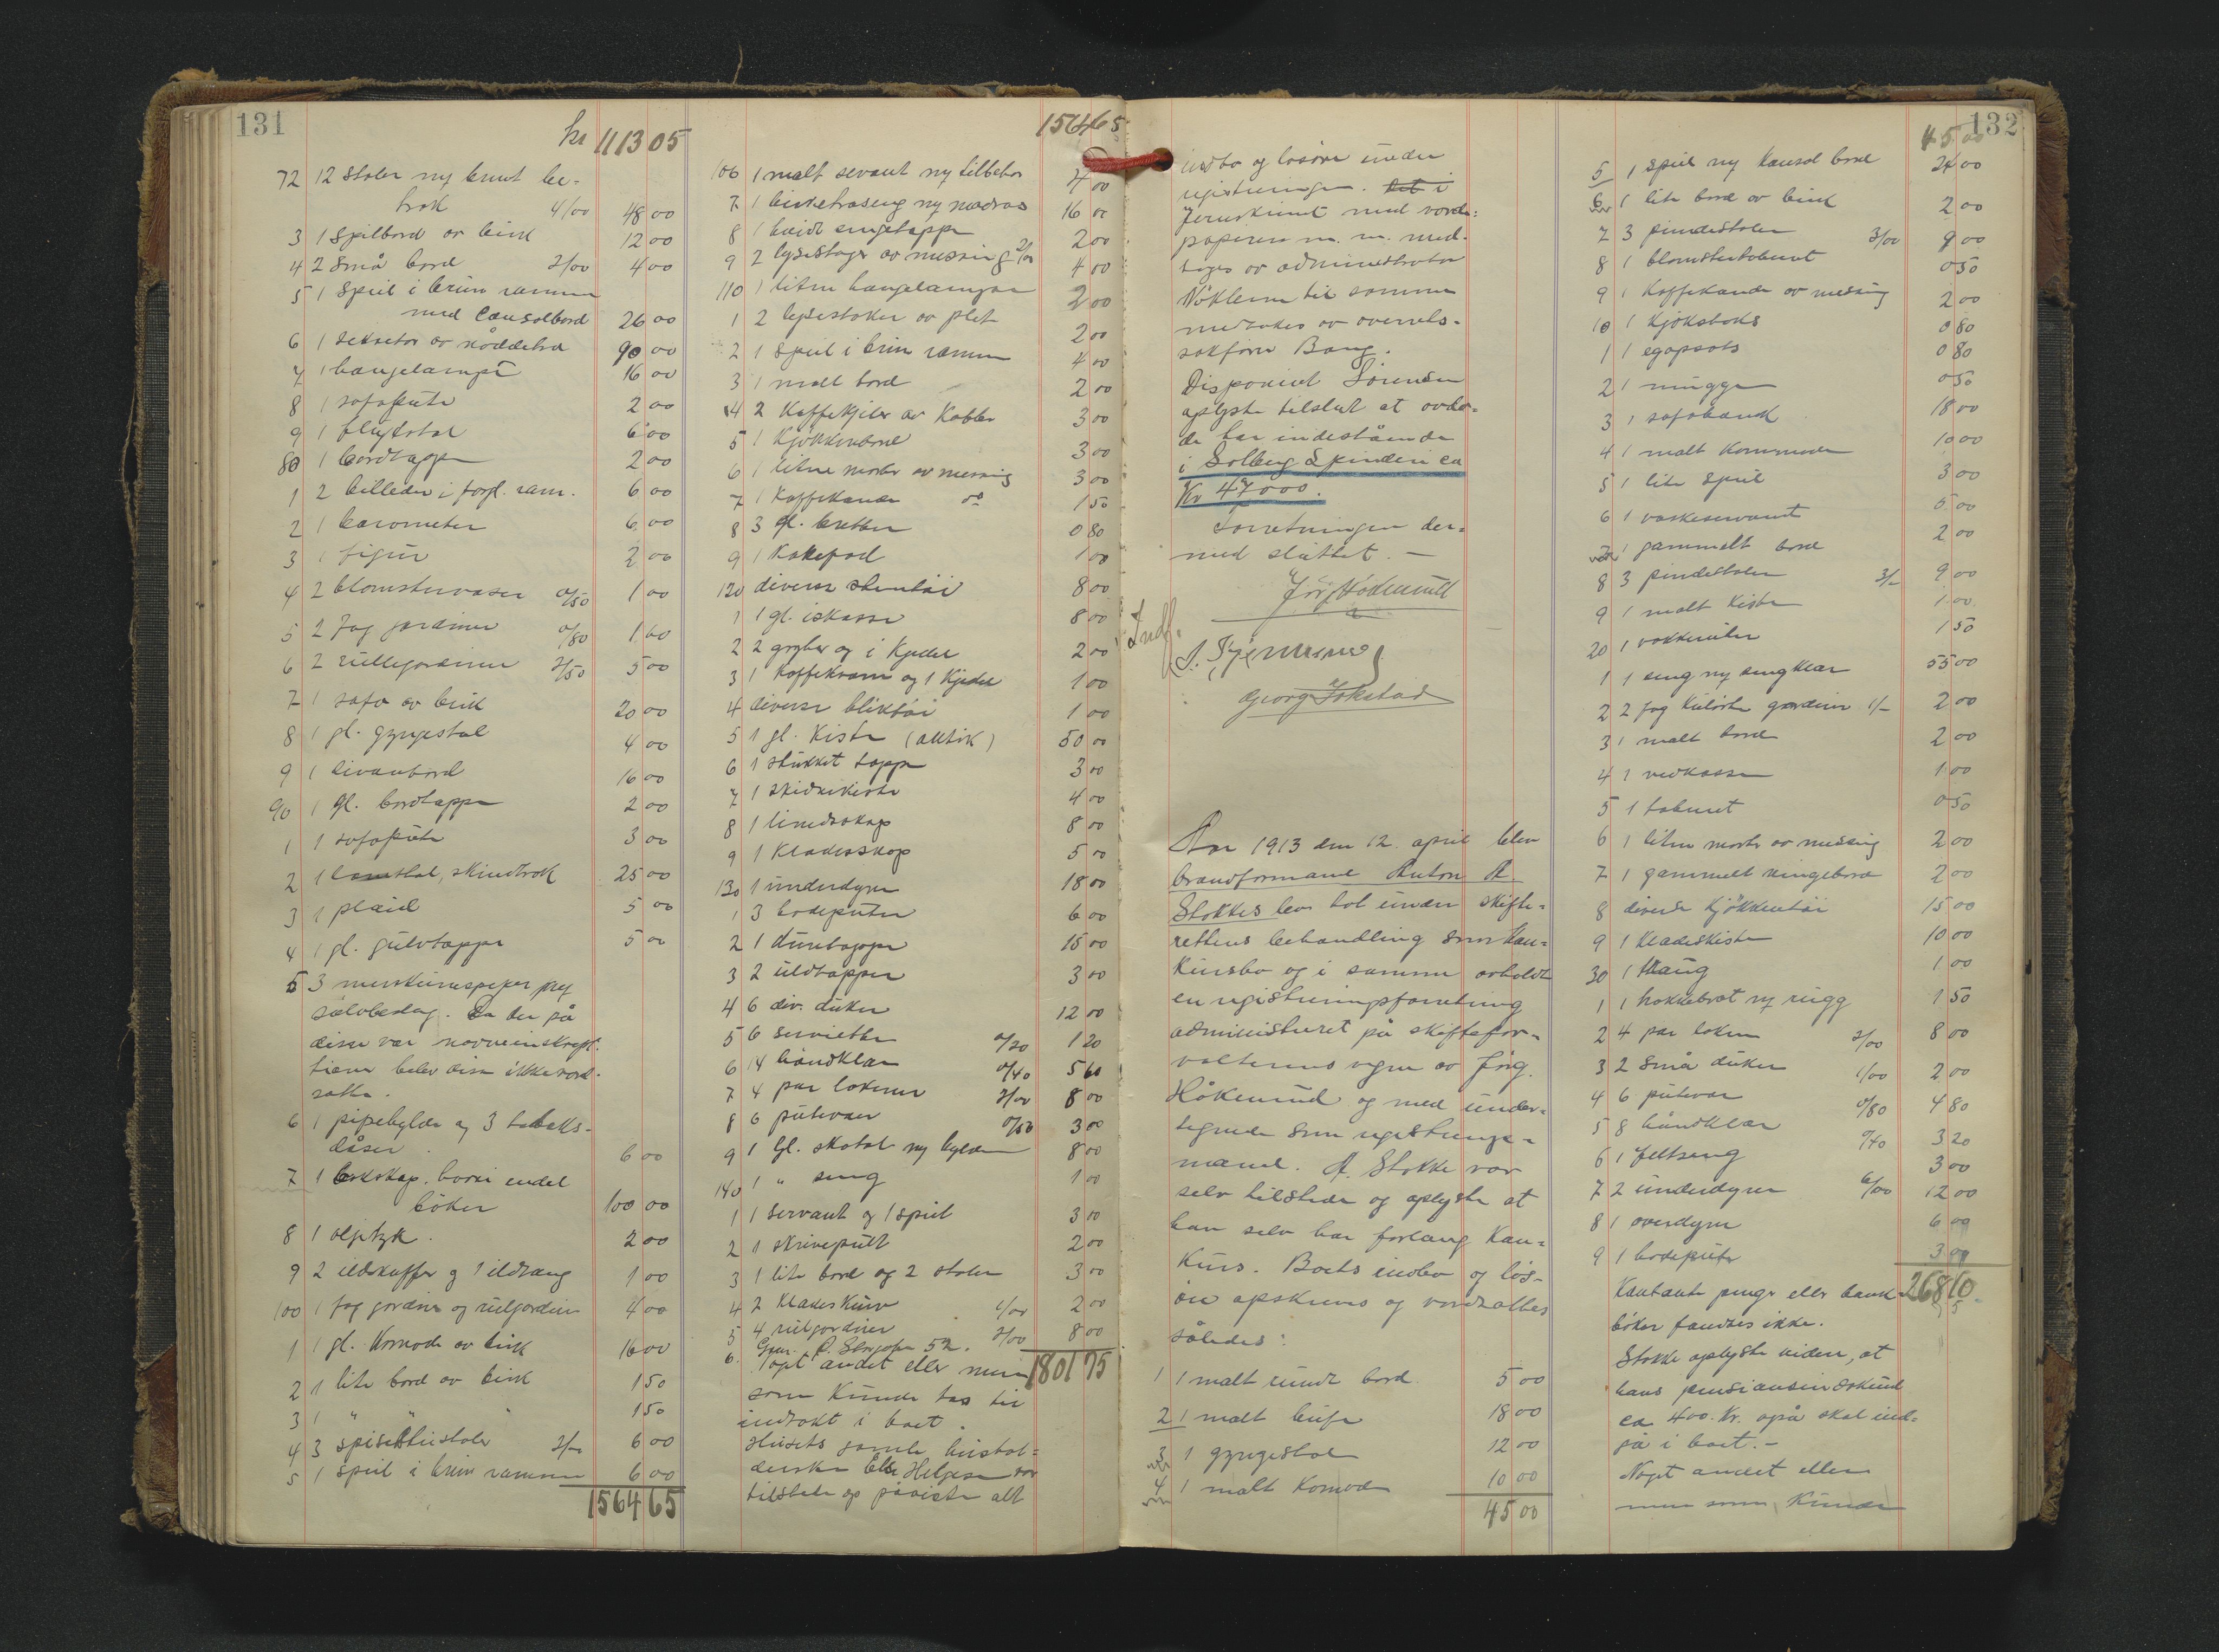 131
kr 1113 05
72 12 stoler m/ brunt be-
træk 4/00 48 00
3 1 spilbord av birk 12 00
4 2 små bord 2/00 4 00
5 1 speil i brun ramme
med consolbord 26 00
6 1 sekretær av nöddetræ 90 00
7 1 hængelampe 16 00
8 1 sofapute 2 00
9 1 flygtstol 6 00
80 1 bordtæppe 2 00
1 2 billeder i forgl. ram. 6 00
2 1 barometer 6 00
3 1 figur 2 00
4 2 blomstervaser 0/50 1 00
5 2 fag gardiner 0/80 1 60
6 2 rullegardiner 2/50 5 00
7 1 sofa av birk 20 00
8 1 gl. gyngestol 4 00
9 1 divanbord 16 00
90 1 gl. bordtæppe 2 00
1 1 sofapute 3 00
2 1 stol, skindtræk 25 00
3 1 plaid 5 00
4 1 gl. gulvtæppe 5 00
5 3 merskumspiper m/
sølvbeslag. Da der på
disse var navneinskrip-
tioner blev disse ikke værd-
satte.
6 1 pipehylde og 3 tobaks-
dåser. 6 00
7 1 bokskap, hvori endel
böker 100 00
8 1 oljetryk. 2 00
9 2 ildskuffer og 1 ildtang 1 00
100 1 fag gardiner og rulgardin 4 00
1 1 gl. Komode av birk 16 00
2 1 lite bord av birk 1 50
3 1 " " " 1 50
4 3 spisestuestoler 2/00 6 00
5 1 speil i brun ramme 6 00
1564 65
1564 65
106 1 malt servant m/ tilbehør 4 00
7 1 birketræseng m/ madras 16 00
8 1 hvidt sengetæppe 2 00
9 2 lysestager av messing 2/00 4 00
110 1 liten hængelampe 2 00
1 2 lysestaker av plet 2 00
2 1 speil i brun ramme 4 00
3 1 malt bord 2 00
4 2 Kaffekjeler av Kobber 3 00
5 1 Kjøkkenbord 3 00
6 1 liten morter av messing 3 00
7 1 Kaffekande do 1 50
8 3 gl. bretter 0 80
9 1 Kakefad 1 00
120 diverse stentöi 8 00
1 1 gl. iskasse 8 00
2 2 gryter og 1 Kjedel 2 00
3 1 Kaffekværn og 1 Kjedel 1 00
4 diverse bliktöi 1 00
5 1 gl. Kiste (antik) 50 00
6 1 stukket tæppe 3 00
7 1 skidnekiste 4 00
8 1 linedskap 8 00
9 1 Klædesskap 5 00
130 1 underdyne 18 00
1 3 hodeputer 6 00
2 1 duntæppe 15 00
3 2 uldtæpper 3 00
4 6 div. duker 12 00
5 6 servietter 0/20 1 20
6 14 håndklær 0/40 5 60
7 4 par lakener 2/00 8 00
8 6 putevar 0/50 3 00
9 1 gl. skatol m/ hylde 8 00
140 1 " seng 1 00
1 1 servant og 1 speil 3 00
2 1 skrivepult 2 00
3 1 lite bord og 2 stoler 3 00
4 2 Klædeskurv 1/00 2 00
5 4 rulgardiner 2/00 8 00
6.
Noget andet eller mere 1801 75
som Kunde tas til
indtækt i boet.
Husets gamle hushol-
derske Else Helgesen var
tilstede og påviste alt
132
indbo og løsøre under
registreringen. Det i
Jernskrinet med værdi-
papirer m. m. med-
toges av administrator
Nöklerne til samme
medtokes av overrets-
sakfører Bang.
Disponent Sörensen
oplyste tilslut at avdö-
de har indestående
i Solberg Spinderi ca
Kr 47000.
Forretningen der-
med sluttet. —
Jörg Håkenrud
Georg Tokstad
År 1913 den 12. april blev
brandformand Anton A.
Stokkes bo tat under skifte-
rettens behandling som Kon-
kursbo og i samme avholdt
en registreringsforretning
administreret på skiftefor-
valterens vegne av Jörg.
Håkenrud og med under-
tegnede som registrerings-
mænd. A. Stokke var
selv tilstede og oplyste at
han selv har forlangt Kon-
Kurs. Boets indbo og løs-
øre opskrives og værdsattes
således:
1 1 malt rundt bord 5 00
2 1 malt bufe 18 00
3 1 gyngestol 12 00
4 1 malt Komode 10 00
45 00
45 00
5 1 speil m/ Konsol bord 24 00
6 1 lite bord av birk 2 00
7 3 pindestoler 3/00 9 00
8 1 blomstertaburet 0 50
9 1 Kaffekande av messing 2 00
10 1 Kjeksboks 0 80
1 1 egopsats 0 80
2 1 mugge 0 50
3 1 sofabænk 18 00
4 1 malt Kommode 10 00
5 1 lite speil 3 00
6 1 vaskeservant 5 00
7 1 gammelt bord 2 00
8 3 pindestoler 3/- 9 00
9 1 malt Kiste 1 00
20 1 vækkerur 1 50
1 1 seng m/ sengklær 55 00
2 2 fag Kulörte gardiner 1/- 2 00
3 1 malt bord 2 00
4 1 vedkasse 1 00
5 1 taburet 0 50
6 1 liten morter av messing 2 00
7 1 gammelt ringebord 2 00
8 diverse Kjökkentöi 15 00
9 1 Klædeskiste 10 00
30 1 1 00
1 1 hakkebræt m/ 1 50
2 4 par laken 2/00 8 00
3 2 små duker 1/00 2 00
4 6 putevar 0/80 4 80
5 8 håndklær 0/40 3 20
6 1 feltseng 3 00
7 2 underdyner 6/00 12 00
8 1 overdyne 6 00
9 1 hodepute 3 00
268 10
Kontante penge eller bank-
böker fandtes ikke.
Stokke oplyste videre, at
hans pensionsindskud
ca 400. Kr. også skal ind-
gå i boet. -
Noget andet eller
mere som Kunde